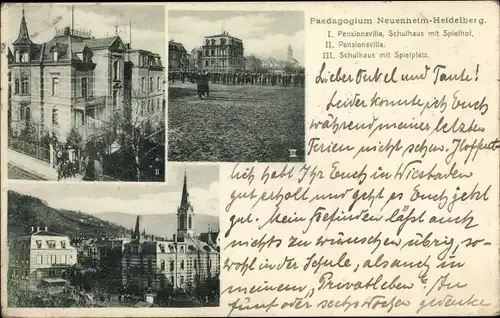 Paedagogium Neuenheim-Heidelberg.
I. Pensionsvilla, Schulhaus mit Spielhof.
II. Pensionsvilla.
III. Schulhaus mit Spielplatz.
Lieber Onkel und Tante!
Leider konnte ich Euch
während meiner letzten
Ferien nicht sehen. Hoffent-
lich habt Ihr Euch in Wiesbaden
gut erholt und geht es Euch jetzt
gut. Mein Befinden läßt auch
nichts zu wünschen übrig, so-
wohl in der Schule, als auch in
meinem „Privatleben“. In
fünf oder sechs Wochen gedenke
II
I